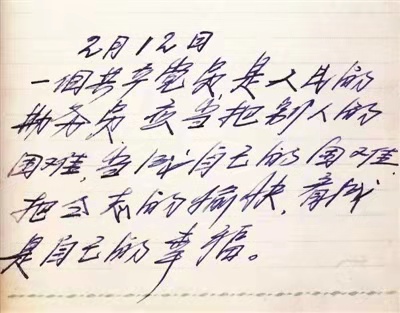 2月12日
一個共产党员是人民的
勤务员,应当把别人的
困难,当成自己的困难,
把同志的愉快,看成
是自己的幸福。